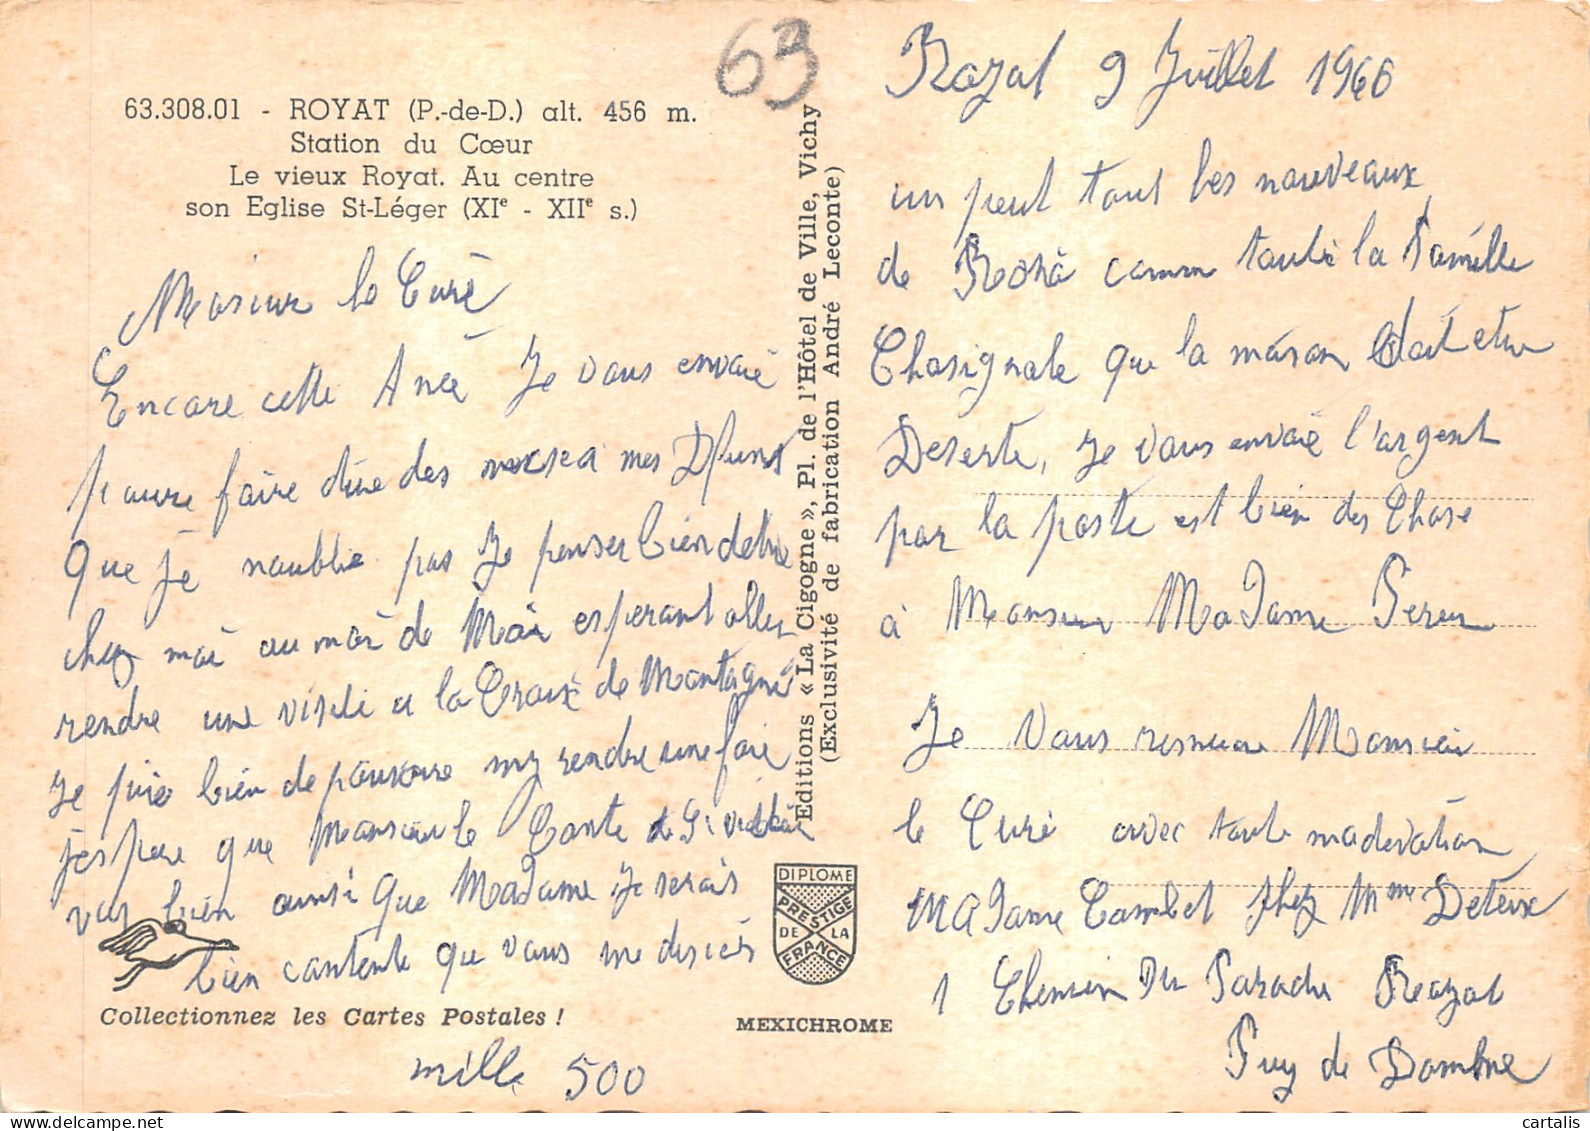 63
63.308.01 - ROYAT (P.-de-D.) alt. 456 m.
Station du Cœur
Le vieux Royat. Au centre
son Eglise St-Léger (XIe - XIIe s.)
Mosieur le Curé
Encore cette Anée Je vous envoie
poure faire dire des messea mes Dfunt
Que je noublie pas Je penser bien detre
chez moi au moi de Mai esperant aller
rendre une visite a la Croix de Montagne
Je prie bien de pouvoire my rendre une foie
j'espere que Monsieur le Conte de
vas bien ainsi que Madame Je serais
bien contente que vous me disiés
mille 500
Collectionnez les Cartes Postales !
Editions « La Cigogne », Pl. de l'Hôtel de Ville, Vichy
(Exclusivité de fabrication André Leconte)
DIPLOME
PRESTIGE
DE LA
FRANCE
MEXICHROME
Royat 9 Juillet 1966
un peut tout les nouveaux
de comm toute la Famille
Chosignole que la maison doit etre
Deserte, Je vous envoie l'argent
par la poste est bien des Chose
à Monsieur Madame
Je vous Monsieur
le Curé avec toute
Madame Combet Chez Mme
1 Chemin Du Paradis Royat
Puy de Dombne
cartalis